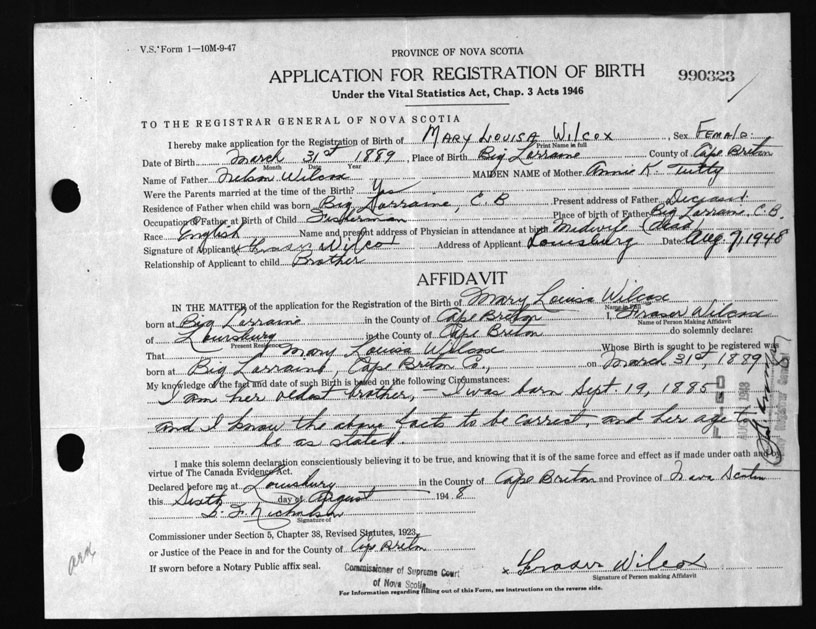 V.S. Form 1—10M-9-47
PROVINCE OF NOVA SCOTIA
APPLICATION FOR REGISTRATION OF BIRTH
990323
Under the Vital Statistics Act, Chap. 3 Acts 1946
TO THE REGISTRAR GENERAL OF NOVA SCOTIA
I hereby make application for the Registration of Birth of Mary Louisa Wilcox, Sex Female
Print Name in full
Date of Birth March 31st 1889, Place of Birth Big Lorraine County of Cape Breton
Month Date Year
Name of Father Nelson Wilcox MAIDEN NAME of Mother Annie K. Tutty
Were the Parents married at the time of the Birth? Yes
Residence of Father when child was born Big Lorraine, C.B Present address of Father Deceased
Occupation of Father at Birth of Child Fisherman Place of birth of Father Big Lorraine, C.B.
Race English Name and present address of Physician in attendance at birth Midwife (Dead)
Signature of Applicant Fraser Wilcox Address of Applicant Louisburg Date Aug. 7, 1948
Relationship of Applicant to child Brother
AFFIDAVIT
IN THE MATTER of the application for the Registration of the Birth of Mary Louisa Wilcox
Name in Full
born at Big Lorraine in the County of Cape Breton I, Fraser Wilcox
Name of Person Making Affidavit
of Louisburg in the County of Cape Breton do solemnly declare:
Present Residence
That Mary Louisa Wilcox Whose Birth is sought to be registered was
born at Big Lorraine, Cape Breton Co., on March 31st, 1889
My knowledge of the fact and date of such Birth is based on the following Circumstances:
I am her oldest brother, - I was born Sept. 19, 1885
and I know the above facts to be correct, and her age to
be as stated
I make this solemn declaration conscientiously believing it to be true, and knowing that it is of the same force and effect as if made under oath and by
virtue of The Canada Evidence Act.
Declared before me at Louisburg in the County of Cape Breton and Province of Nova Scotia
this Sixth day of August 1948
Signature of
Commissioner under Section 5, Chapter 38, Revised Statutes, 1923,
or Justice of the Peace in and for the County of Cape Breton
If sworn before a Notary Public affix seal.
Commissioner of Supreme Court
of Nova Scotia
x Fraser Wilcox
Signature of Person making Affidavit
For Information regarding filling out of this Form, see instructions on the reverse side.